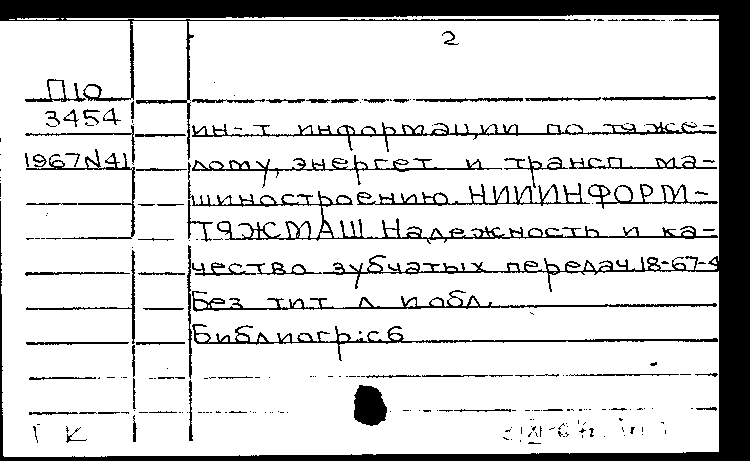 2
П10
3454
1967N41
ин-т информации по тяже-
лому, энергет и трансп ма-
шиностроению. НИИИНФОРМ-
ТЯЖМАШ. Надежность и ка-
чество зубчатых передач. 18-67-4
Без тит л и обл.
Библиогр:с6
Г К